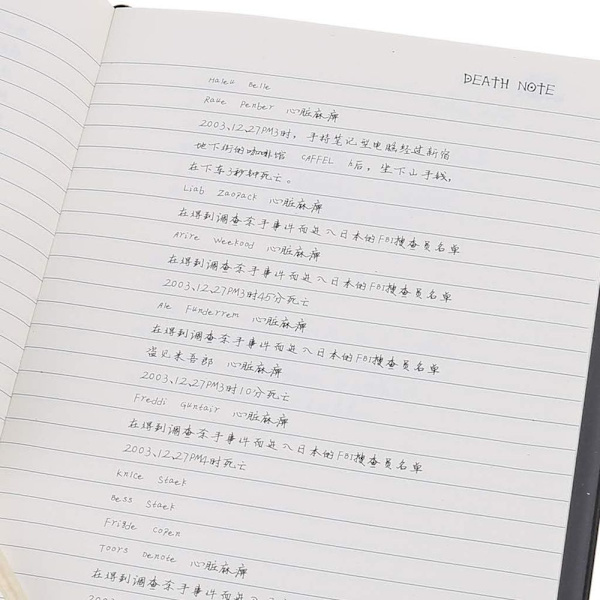 DEATH NOTE
Haleu Belle
Raue Penber 心脏麻痹
2003、12、27PM3时，手持笔记型电脑经过新宿
地下街的咖啡馆 CAFFEL 后，坐下山手线，
在下车3秒钟死亡。
Liab Zaopack 心脏麻痹
在得到调查杀手事件而进入日本的FBI搜查员名单
Arire Weekood 心脏麻痹
在得到调查杀手事件而进入日本的FBI搜查员名单
2003、12、27PM3时45分死亡
Ale Funderrem 心脏麻痹
在得到调查杀手事件而进入日本的FBI搜查员名单
心脏麻痹
2003、12、27PM3时10分死亡
Freddi Guntair 心脏麻痹
在得到调查杀手事件而进入日本的FBI搜查员名单
2003、12、27PM4时死亡
Knice Staek
Bess Staek
Frigde Copen
Toors Denote 心脏麻痹
在得到调查杀手事件而进入日本的FBI搜查员名单